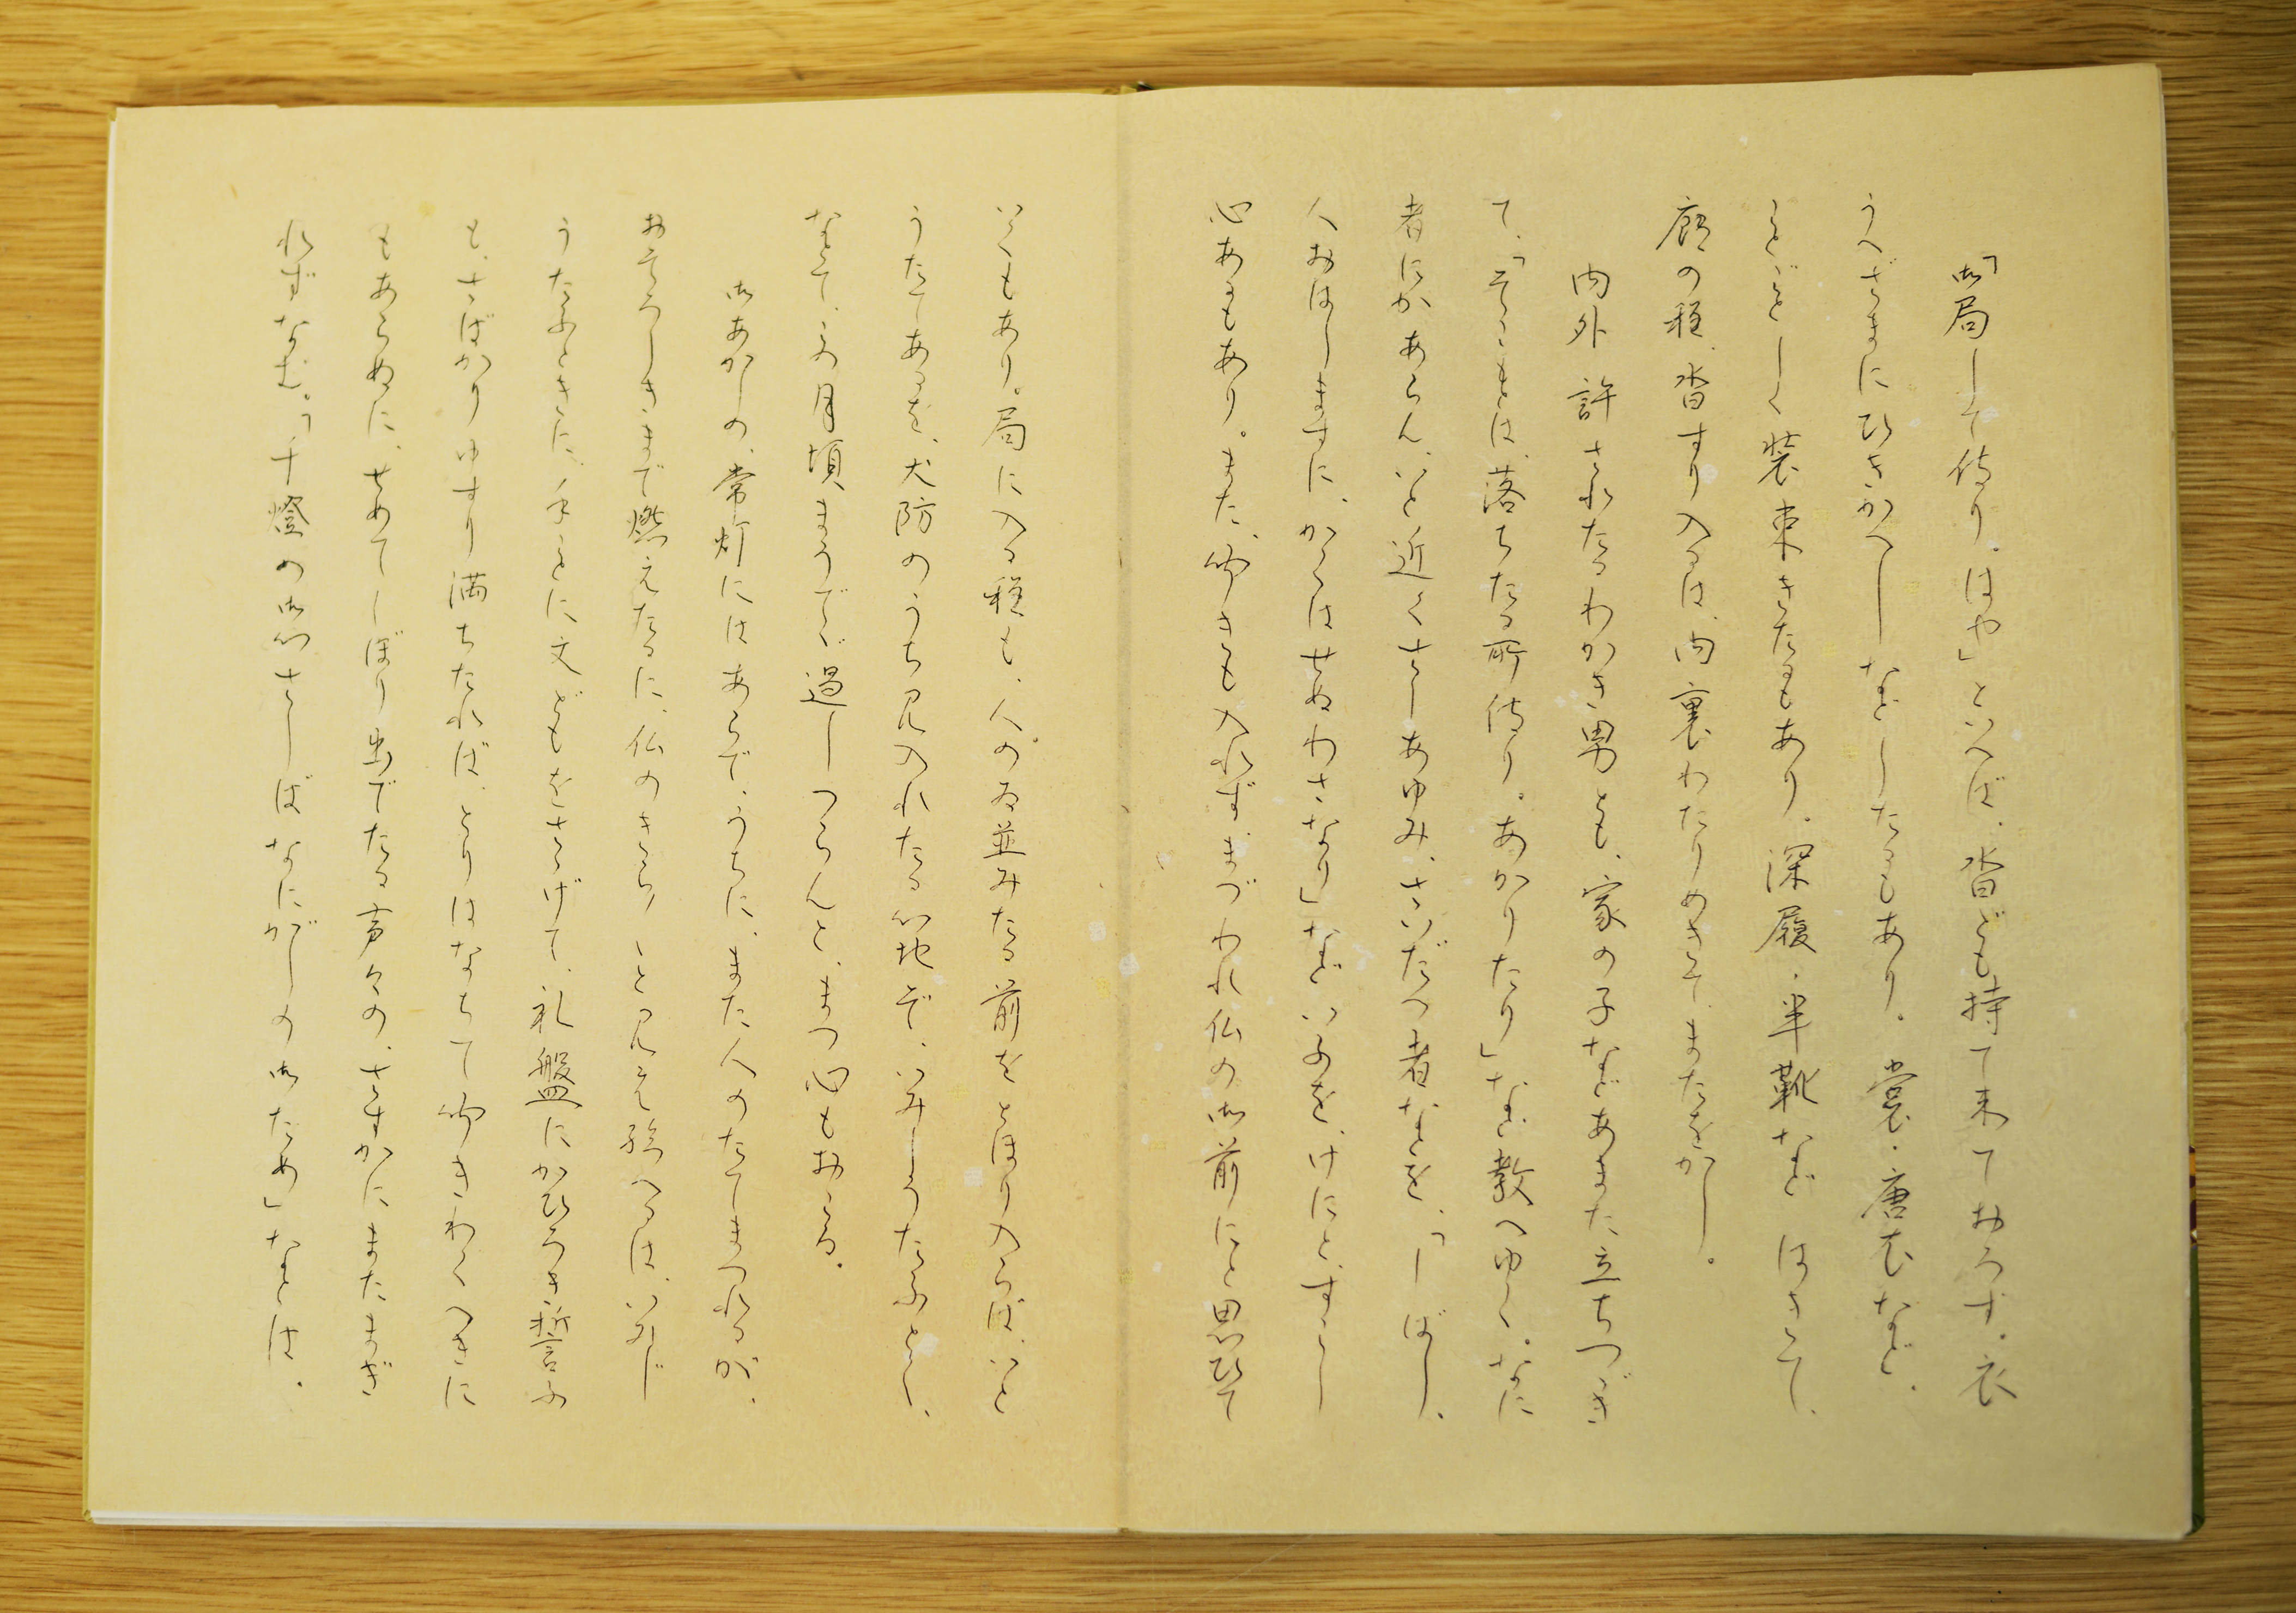 「御局して侍り。はや」といへば、沓ども持て来ておろす。衣
うへざまにひきかへしなどしたるもあり。裳・唐衣など、
ことごとしく装束きたるもあり。深履・半靴などはきて、
廊の程、沓すり入るは、内裏わたりめきて、またをかし。
内外許されたるわかき男ども、家の子などあまた立ちつづき
て、「そこもとは、落ちたる所侍り。あがりたり」など教へゆく。なに
者にかあらん、いと近くさしあゆみ、さいだつ者などを、「しばし。
人おはしますに、かくはせぬわざなり」などいふを、げにと、すこし
心あるもあり。また、聞きも入れず、まづわれ仏の御前にと思ひて
いくもあり。局に入る程も、人のゐ並みたる前をとほり入らば、いと
うたてあるを、犬防のうち見入れたる心地ぞ、いみじうたふとく、
などて、この月頃まうでで過しつらんと、まづ心もおこる。
御あかしの、常灯にはあらで、うちに、また人のたてまつれるが、
おそろしきまで燃えたるに、仏のきらきらと見え給へるは、いみじ
うたふときに、手ごとに文どもをささげて、礼盤にかひろき誓ふ
も、さばかりゆすり満ちたれば、とりはなちて聞きわくべきに
もあらぬに、せめてしぼり出でたる声々の、さすがにまたまぎ
れずなむ。「千燈の御心ざしはなにがしの御ため」などは、